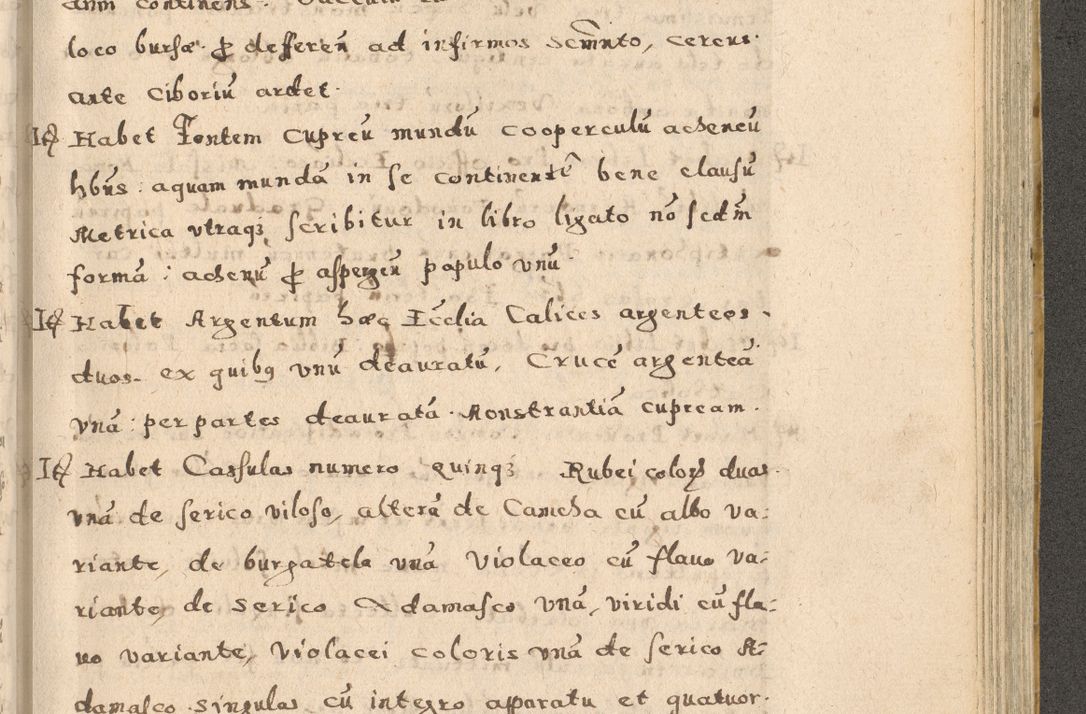 loco bursæ. ꝑ deferen̄ ad infirmos Scm̃nto, cereus.
ante Ciboriū ardet.
Itꝫ Habet Fontem Cupreū mundū cooperculū acheneū
hbn̄s: aquam mundā in se continentē bene clausū
Metrica vtraqꝫ scribitur in libro ligato nō scdm̄
formā: achenū ꝑ aspergen̄ populo vnū
Itꝫ Habet Argentum hæc Ecclia Calices argenteos.
duos. ex quibꝰ vnū deauratū, Crucē argenteā
vnā: per partes deauratā. Monstrantiā cupream.
Itꝫ Habet Casulas numero quinqꝫ Rubei coloris duas.
vnā de serico viloso, alterā de Camcha cū albo va:
riante, de burgatela vnā violaceo cū flauo va:
riante, de serico Adamasco vnā, viridi cū fla:
uo variante, violacei coloris vnā de serico A:
damasco singulas cū integro apparatu et quatuor.